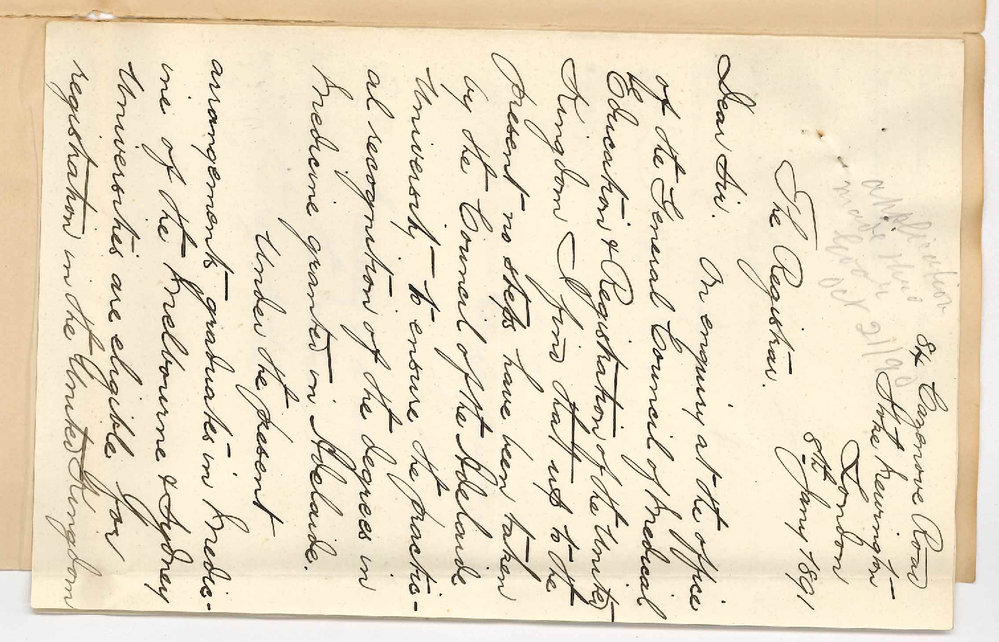 84 Cazenove Road
Stoke Newington
London
8th Jany 1891
application
made
Oct 21/90
The Registrar.
Dear Sir. On enquiry at the office
of the General Council of Medical
Education & Registration of the United
Kingdom I find that up to the
present no steps have been taken
by the Council of the Adelaide
University to ensure the practic-
al recognition of the degrees in
Medicine granted in Adelaide.
Under the present
arrangements graduates in Medic-
ine of the Melbourne & Sydney
Universities are eligible for
registration in the United Kingdom